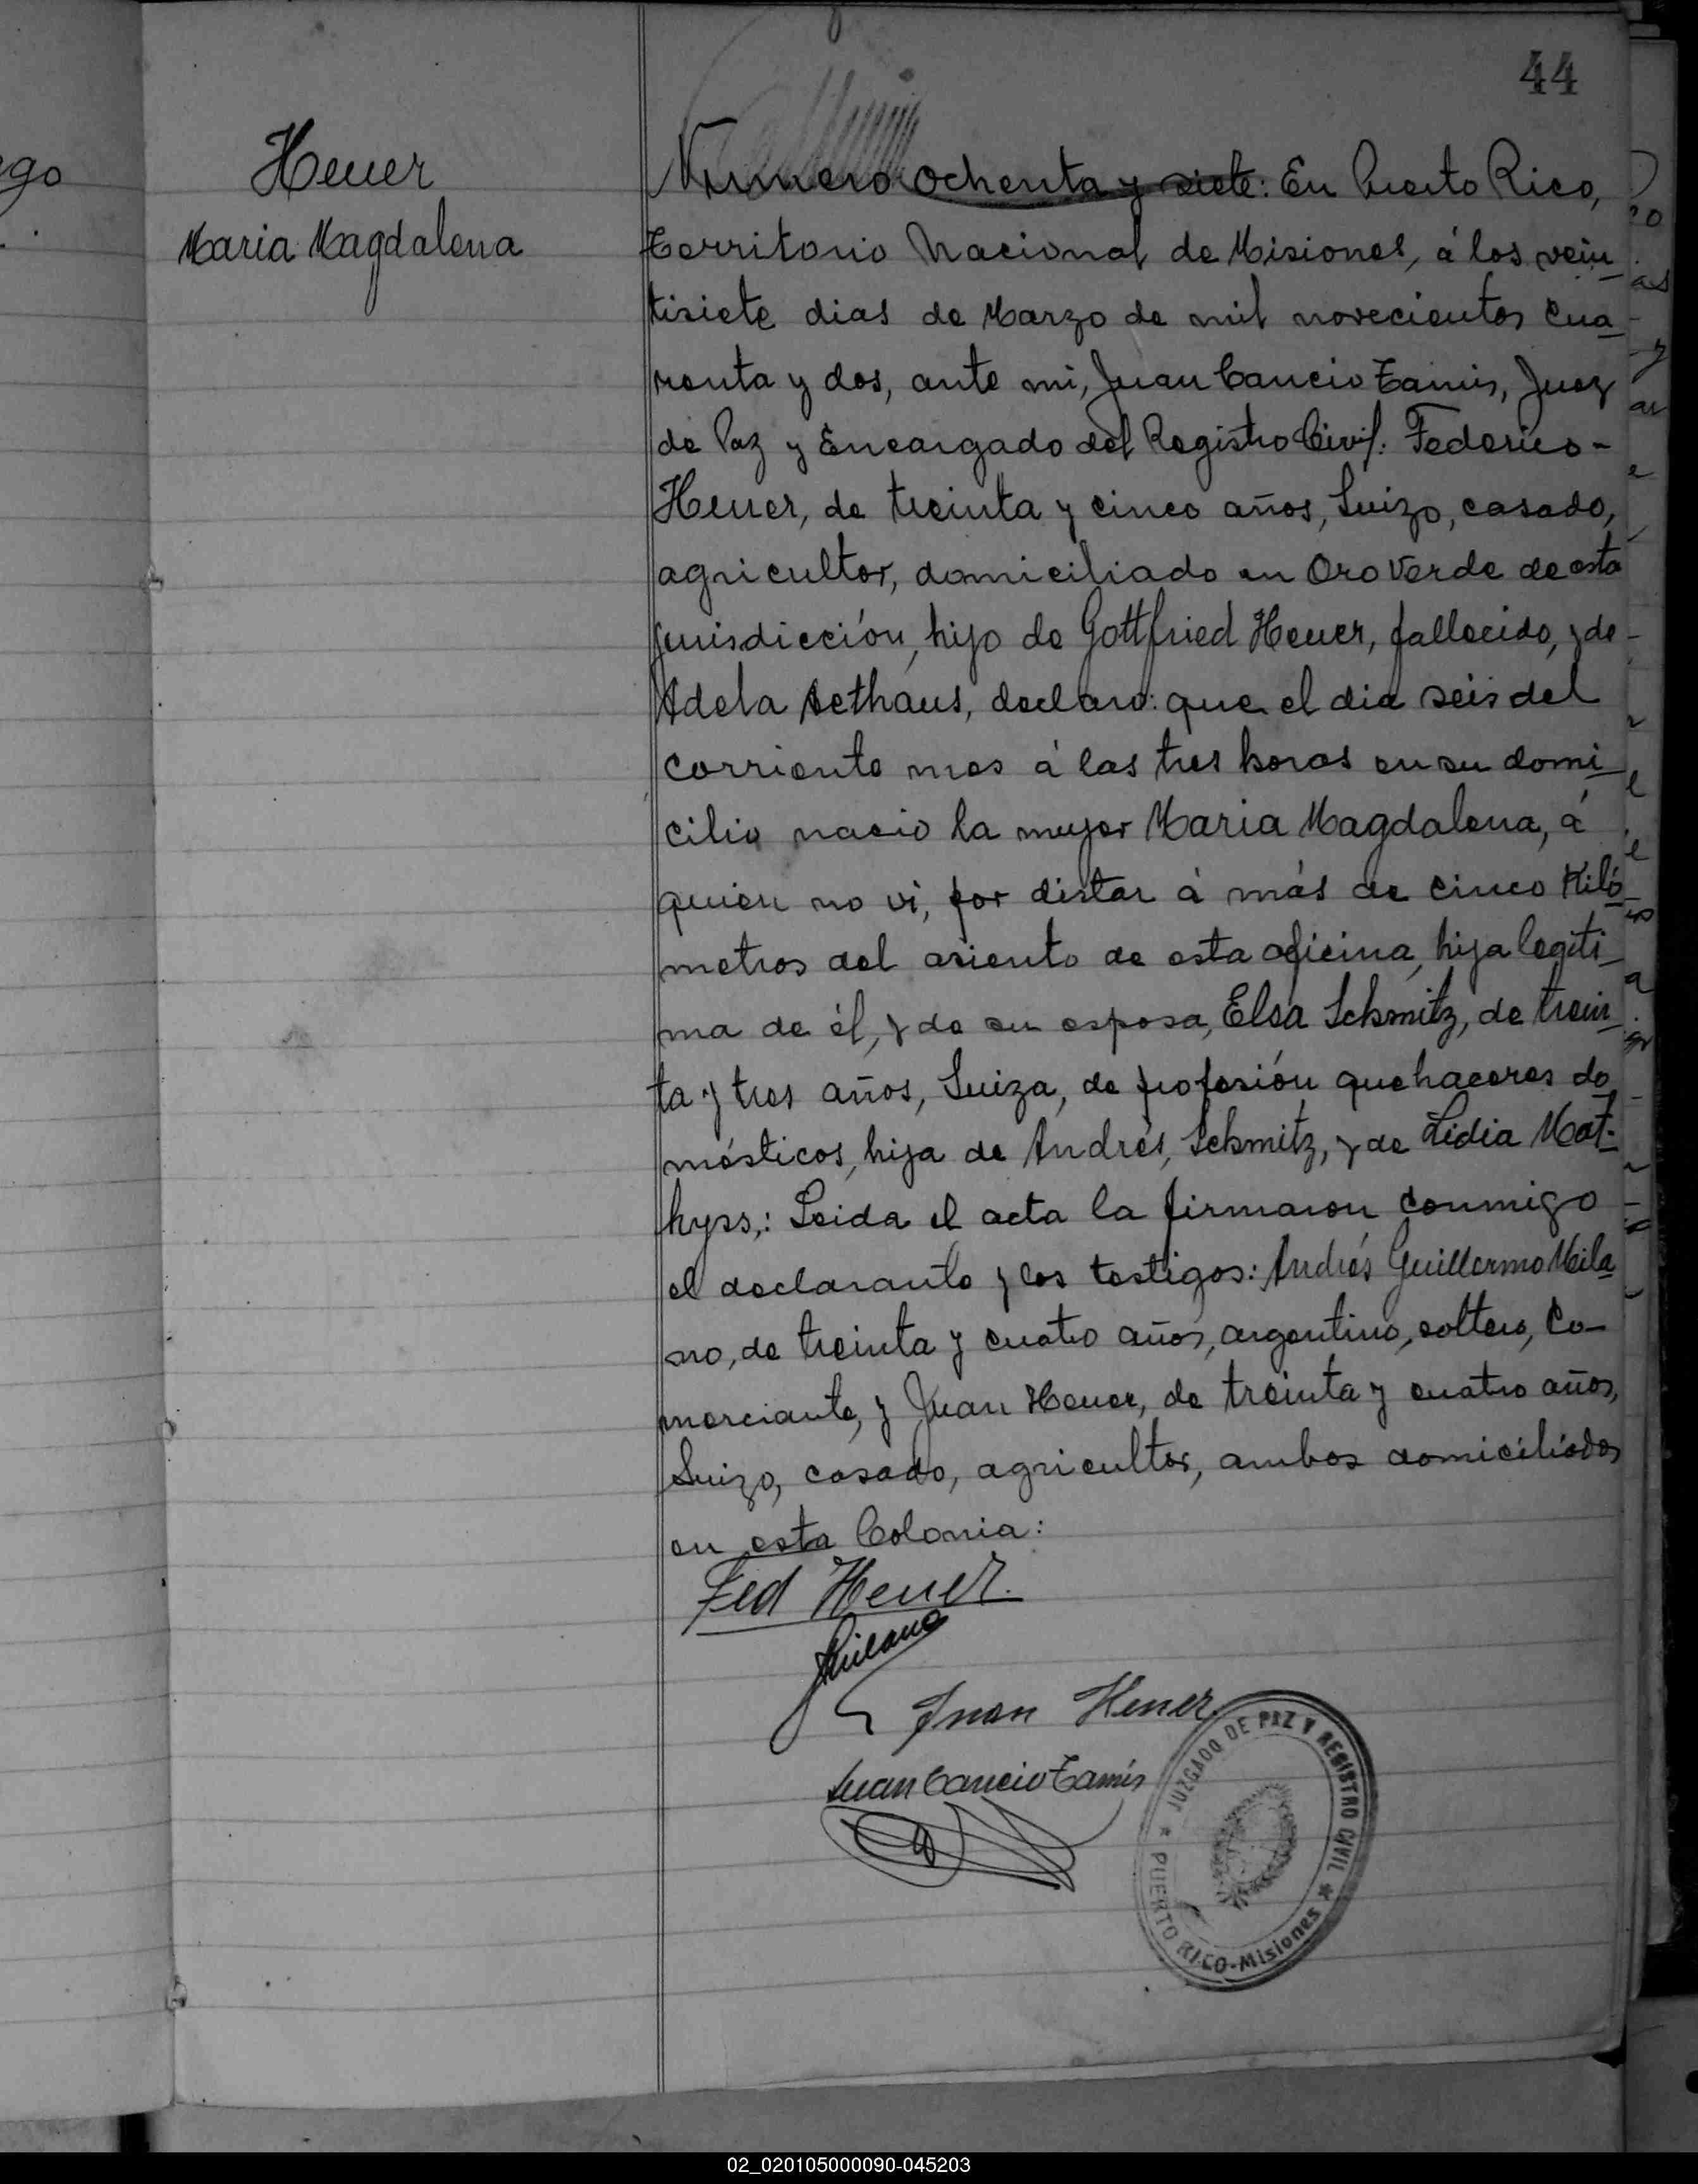 44
Heuer
Maria Magdalena
Numero ochenta y siete: En Puerto Rico,
Territorio Nacional de Misiones, á los vein
tisiete dias de Marzo de mil novecientos cua
renta y dos, ante mi, Juan Cancio Tamis, Juez
de Paz y Encargado del Registro Civil: Federico-
Heuer, de treinta y cinco años, Suizo, casado,
agricultor, domiciliado en Oro Verde de esta
jurisdicción, hijo de Gottfried Heuer, fallecido, y de
Adela Aethaus, declaro: que el dia seis del
corriente mes á las tres horas en su domi
cilio nacio la mujer Maria Magdalena, á
quien no vi, por distar á más de cinco Kiló
metros del asiento de esta oficina, hija legiti
ma de él, y de su esposa, Elsa Schmitz, de trein
ta y tres años, Suiza, de profesión quehaceres do
mésticos, hija de Andrés, Schmitz, y de Lidia Mat-
hyss,: Leida el acta la firmaron conmigo
el declarante y los testigos: Andrés Guillermo Mila
no, de treinta y cuatro años, argentino, soltero, Co-
merciante, y Juan Heuer, de treinta y cuatro años,
Suizo, casado, agricultor, ambos domiciliados
en esta Colonia:
Fed Heuer.
Milano
Juan Heuer.
Juan Cancio Tamis
JUZGADO DE PAZ Y REGISTRO CIVIL
* PUERTO RICO-Misiones *
ego
02_020105000090-045203